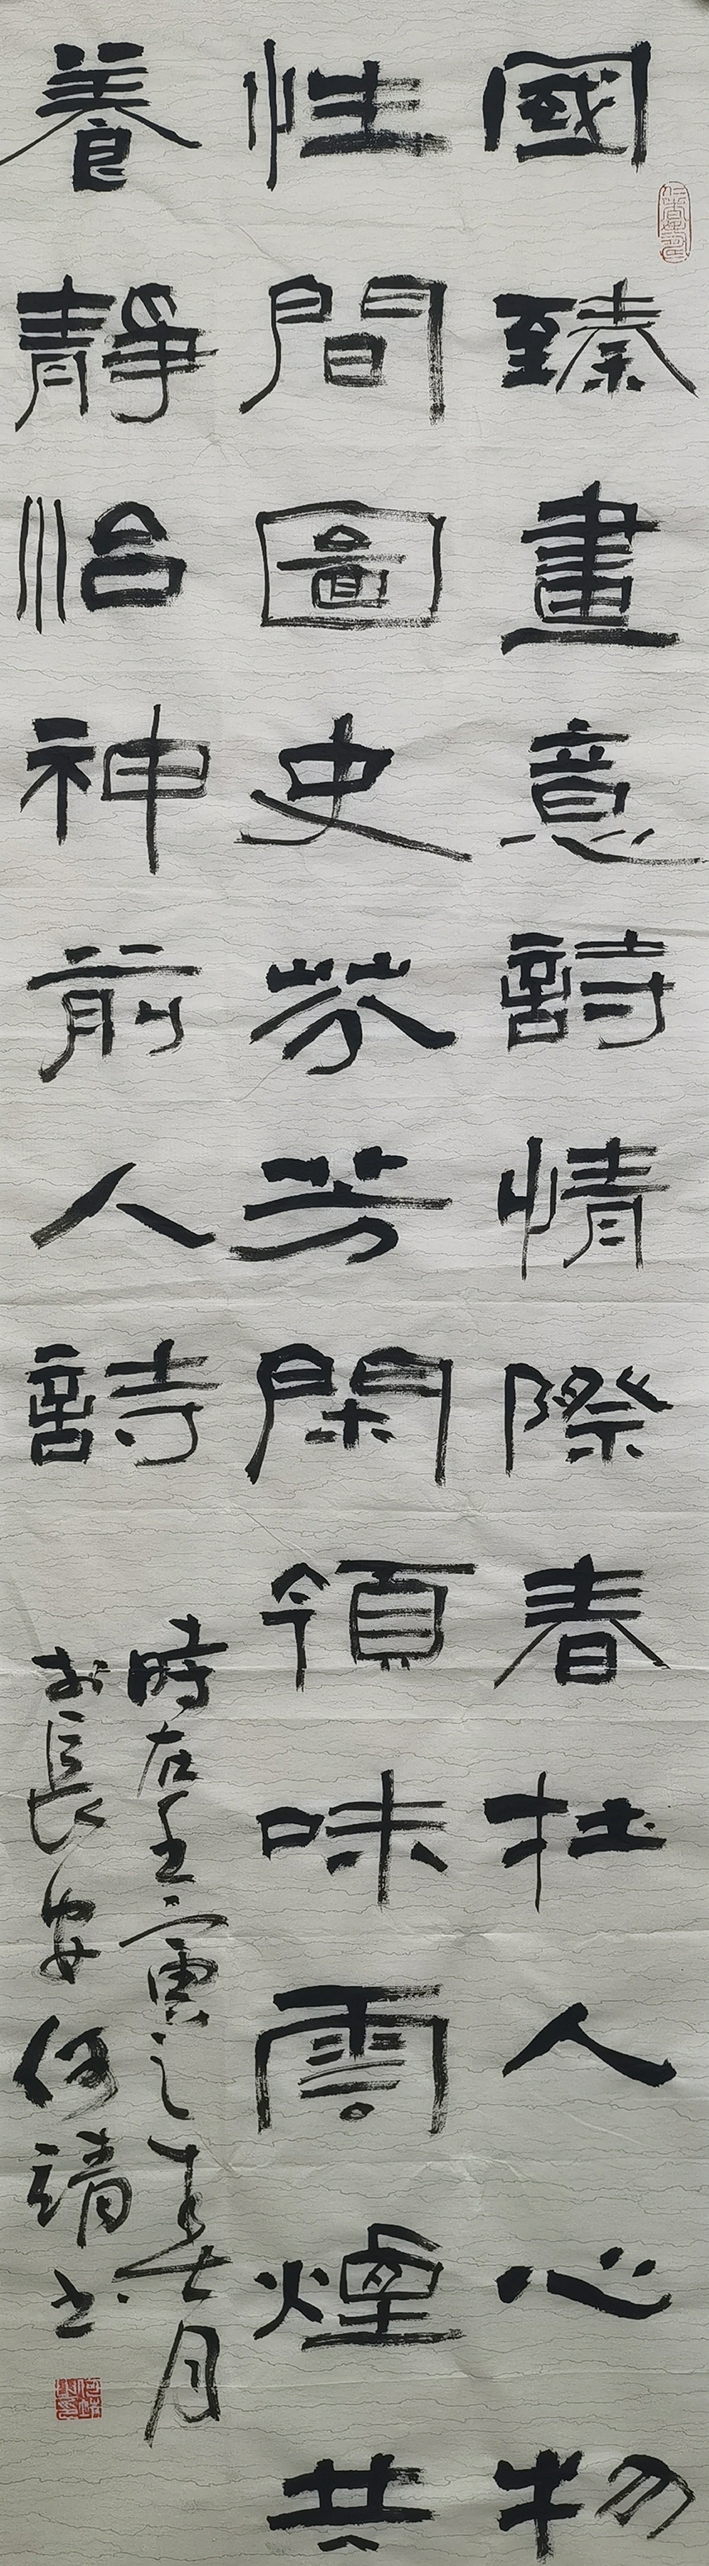 國臻畫意詩情際春社人心物
性間圖史芬芳閑領味雲煙共
養靜怡神前人詩
時在壬寅之春七月
於長安何靖書